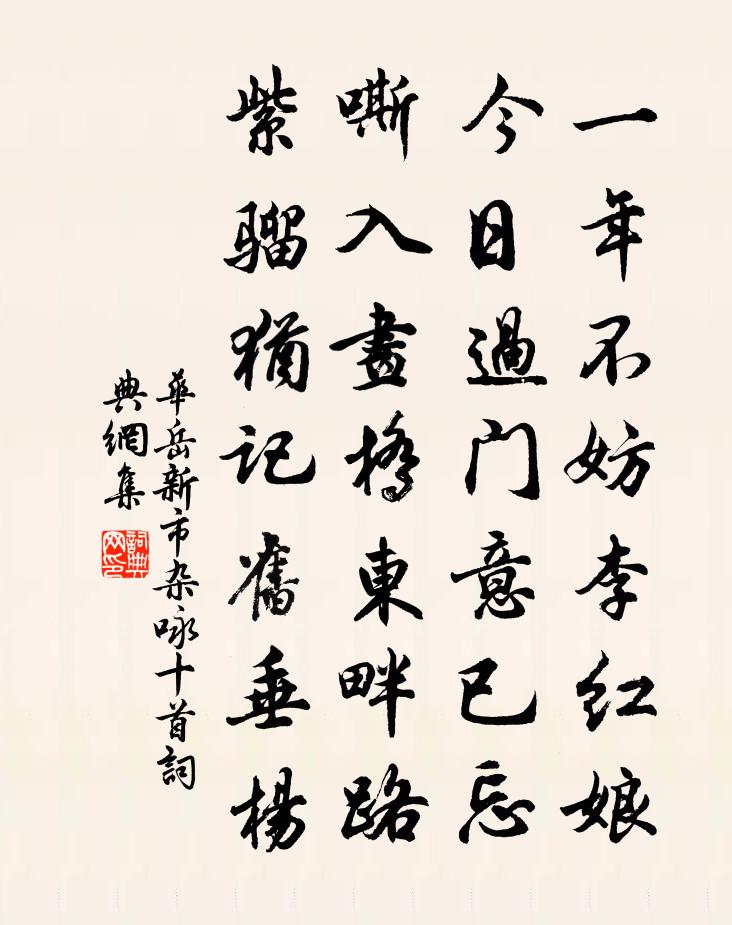 一年不妨李红娘
今日過门意已忘
嘶入畫橋東畔路
紫骝犹记舊垂楊
華岳新市杂咏十首詞
典網集
詞典
网印